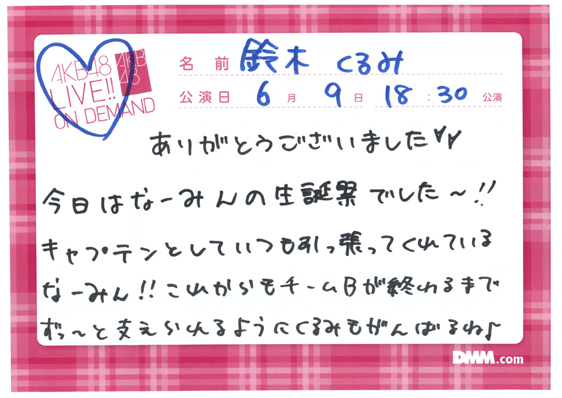 AKB48
LIVE!!
ON DEMAND
AKB
48
名前 鈴木 くるみ
公演日 6月 9日 18:30 公演
ありがとうございました♡♡
今日はなーみんの生誕祭でした〜!!
キャプテンとしていつも引っ張ってくれている
なーみん!! これからもチームBが終わるまで
ずっ〜と支えられるようにくるみもがんばるね♪
DMM.com